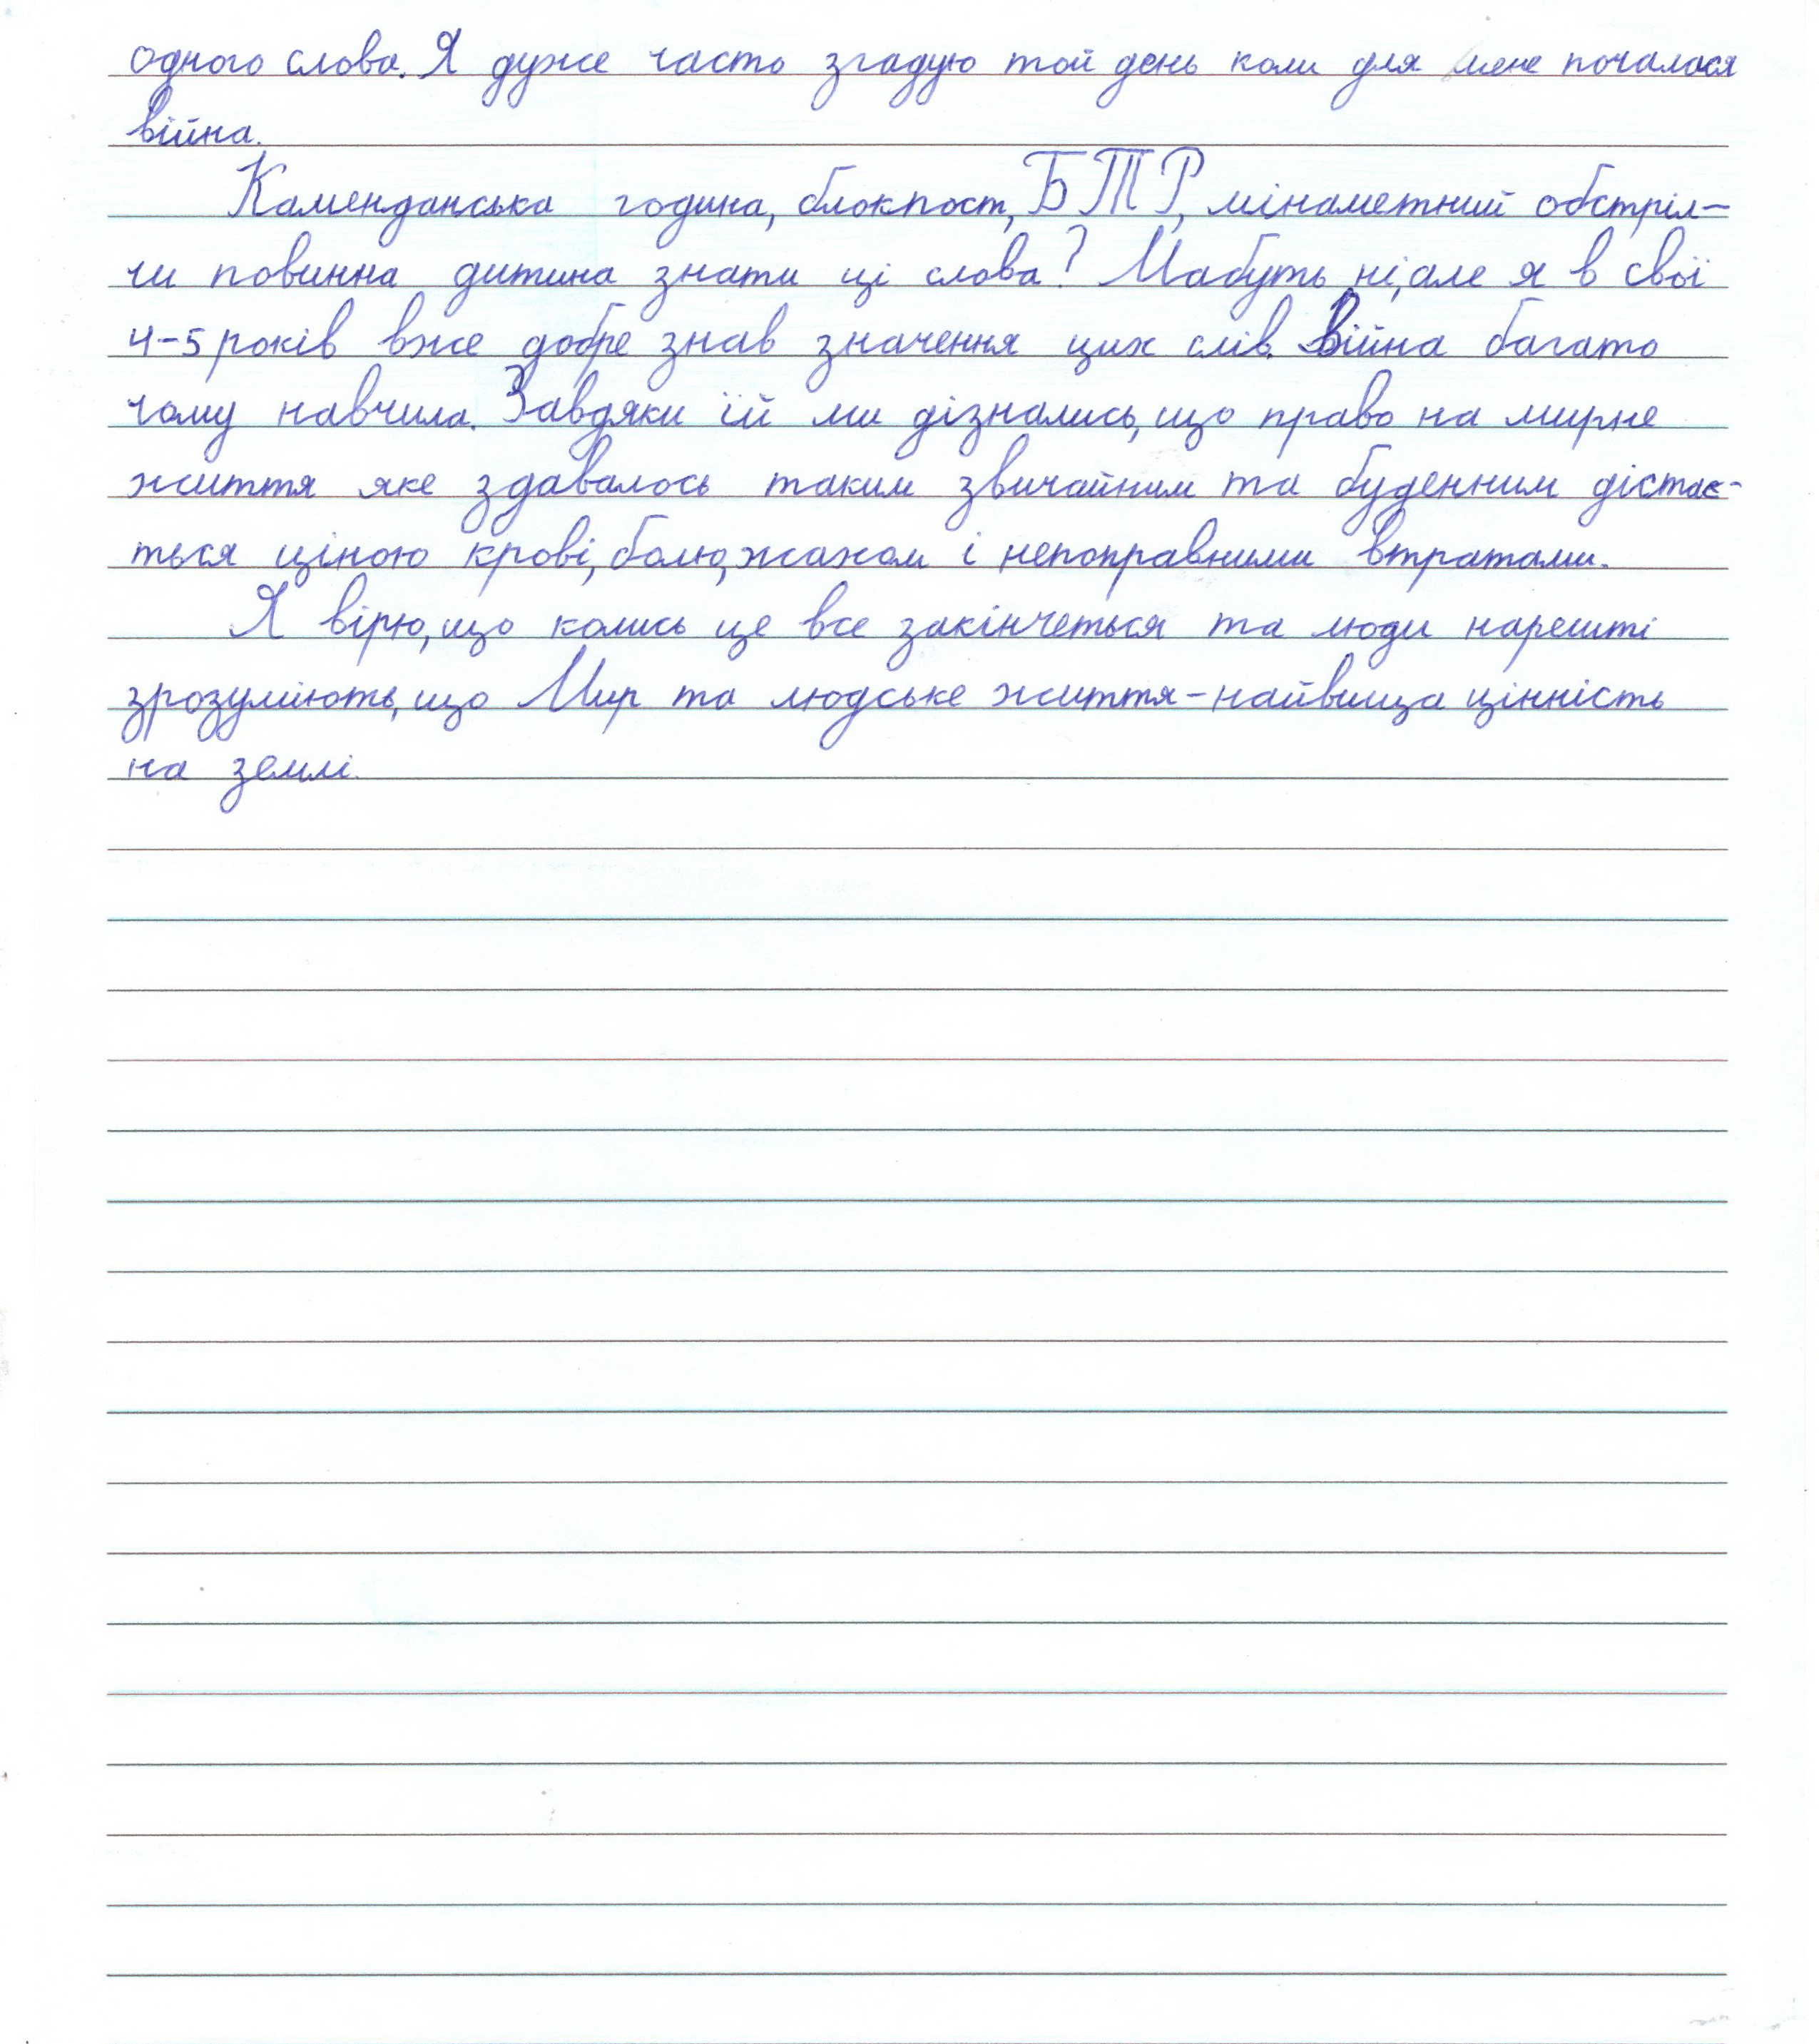 одного слова. Я дуже часто згадую той день коли для мене почалася
війна.
Каменданська година, блокпост, БТР, мінаметний обстріл-
чи повинна дитина знати ці слова? Мабуть ні, але я в свої
4-5 років вже добре знав значення цих слів. Війна багато
чому навчила. Завдяки їй ми дізнались, що право на мирне
життя яке здавалось таким звичайним та буденним дістає-
ться ціною крові, болю, жахом і непоправними втратами.
Я вірю, що колись це все закінчеться та люди нарешті
зрозуміють, що Мир та людське життя-найвища цінність
на землі.